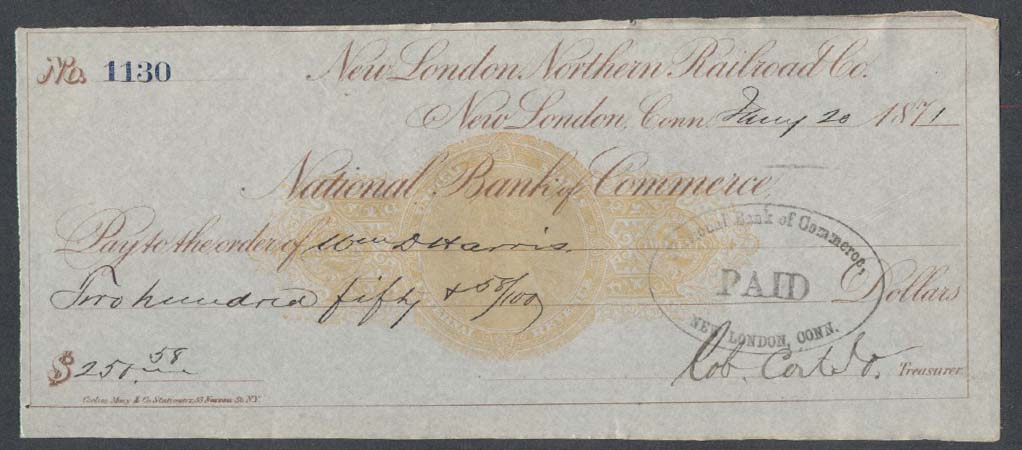 No. 1130
New London Northern Railroad Co.
New London, Conn. Jany 20 1871
National Bank of Commerce
Pay to the order of Wm D Harris.
Two hundred fifty & 58/100 Dollars
Bank of Commerce,
PAID
NEW LONDON, CONN.
$250.58
Rob. Treasurer
& Co. Stationers, 55 Nassau St. N.Y.